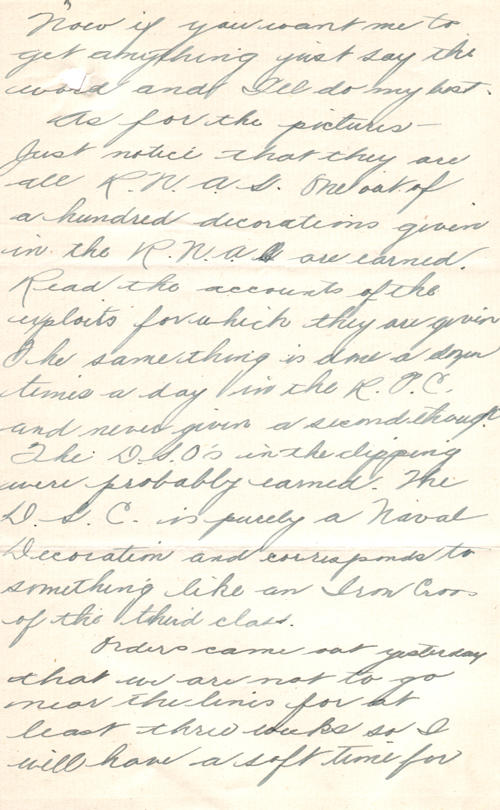 Now if you want me to
get anything just say the
word and I'll do my best.
As for the pictures—
Just notice that they are
all R. N. A. S. One out of
a hundred decorations given
in the R. N. A. S are earned.
Read the accounts of the
exploits for which they are given
The same thing is done a dozen
times a day in the R. F. C.
and never given a second though
The D.S.O's in the clipping
were probably earned. The
D. S. C. is purely a Naval
Decoration and corresponds to
something like an Iron Cross
of the third class.
Orders came out yesterday
that we are not to go
near the lines for at
least three weeks so I
will have a soft time for